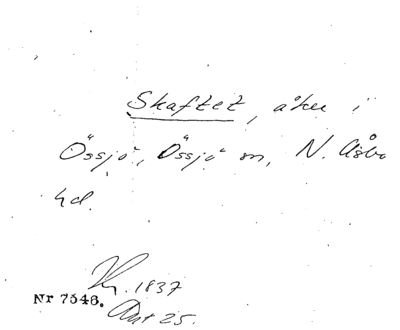 Skaftet, åker i
Össjö, Össjö sn, N. Åsbo
hd.
1837
Nr 7546. Akt 25.